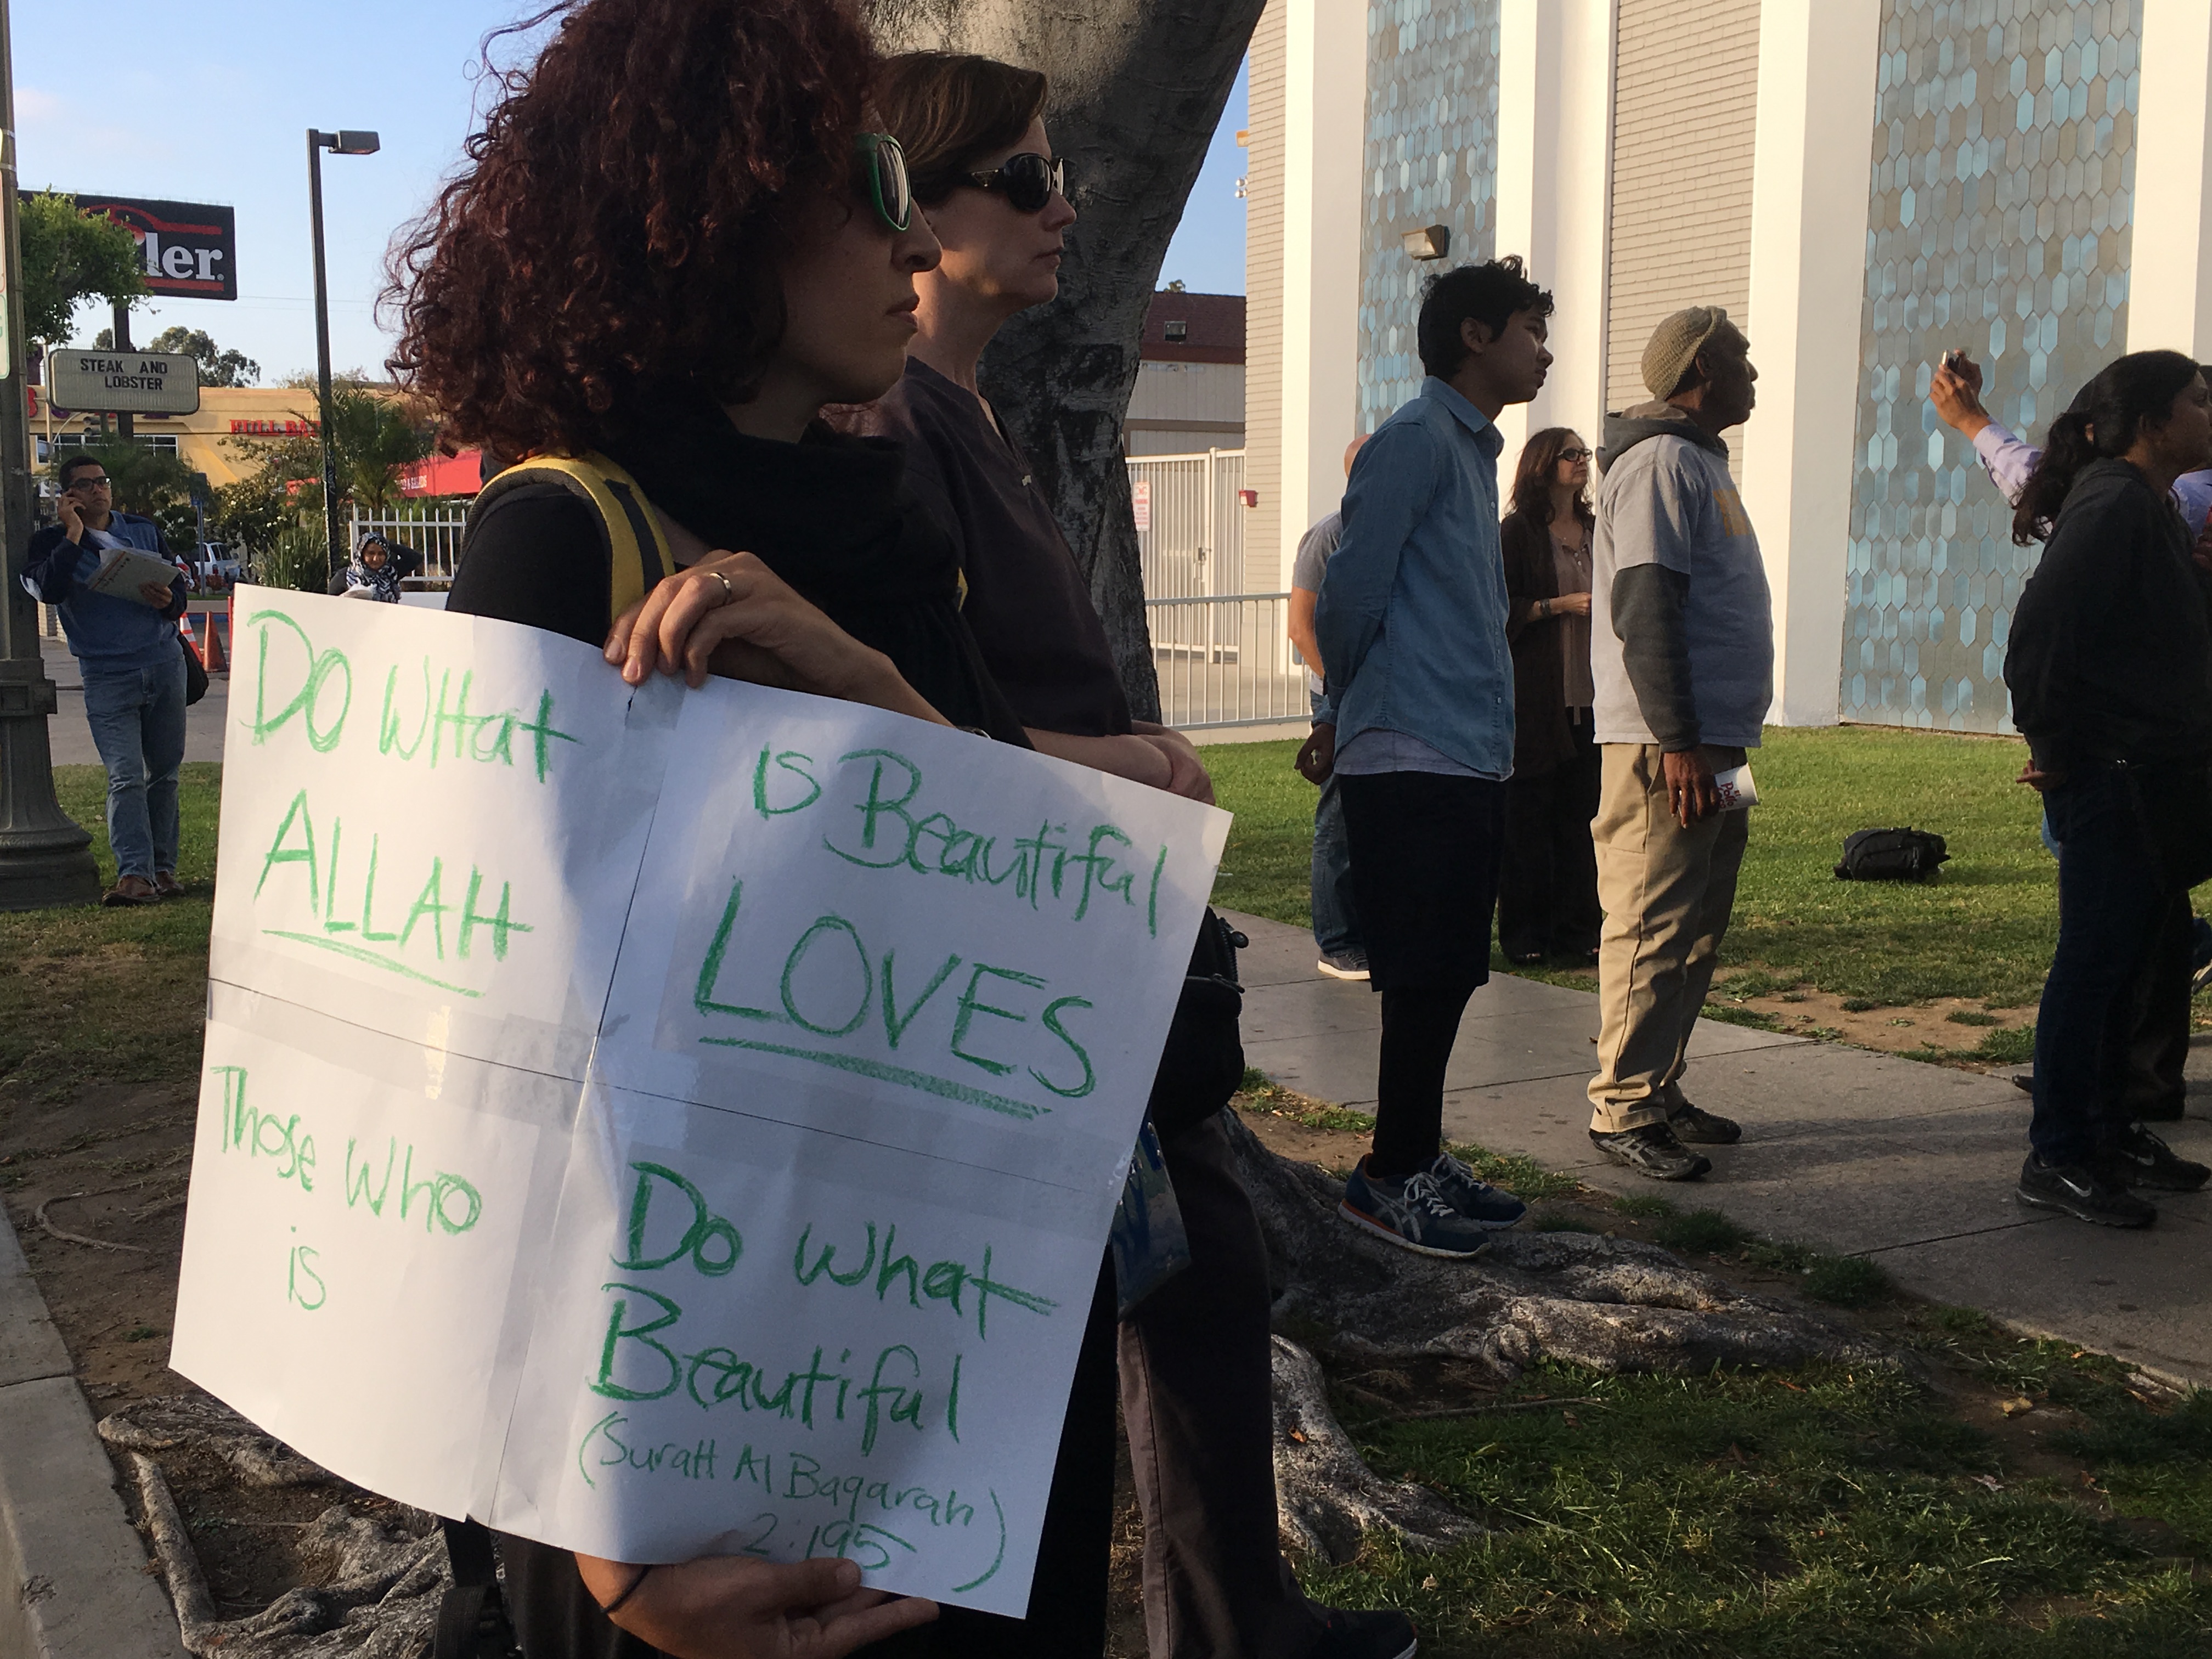 ler
STEAK AND
LOBSTER
DO WHat
ALLAH
Those Who
is
is Beautiful
LOVES
Do what
Beautiful
(Suratt Al Baqarah)
2.195